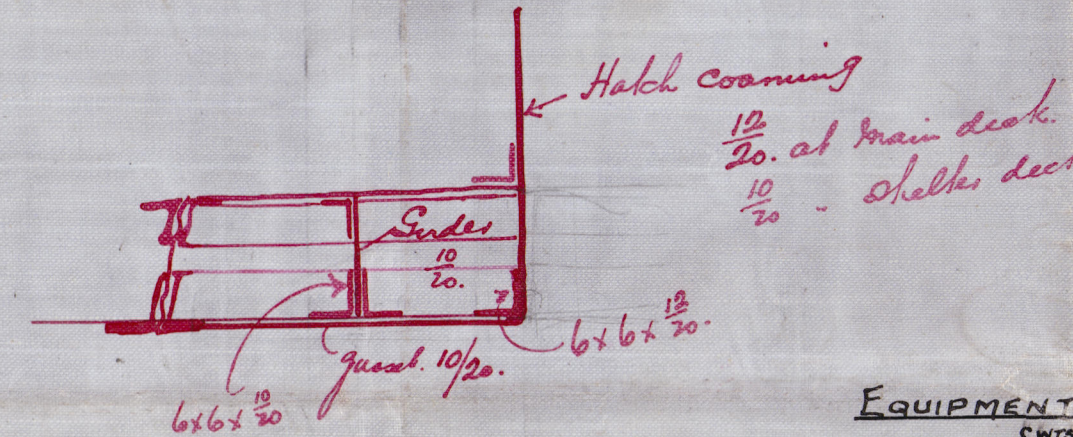 Hatch coaming
12/20. at main deck.
10/20 - shelter deck
Girder
10/20.
6x6x 12/20.
gusset. 10/20.
6x6x 10/20
EQUIPMENT
CWTS